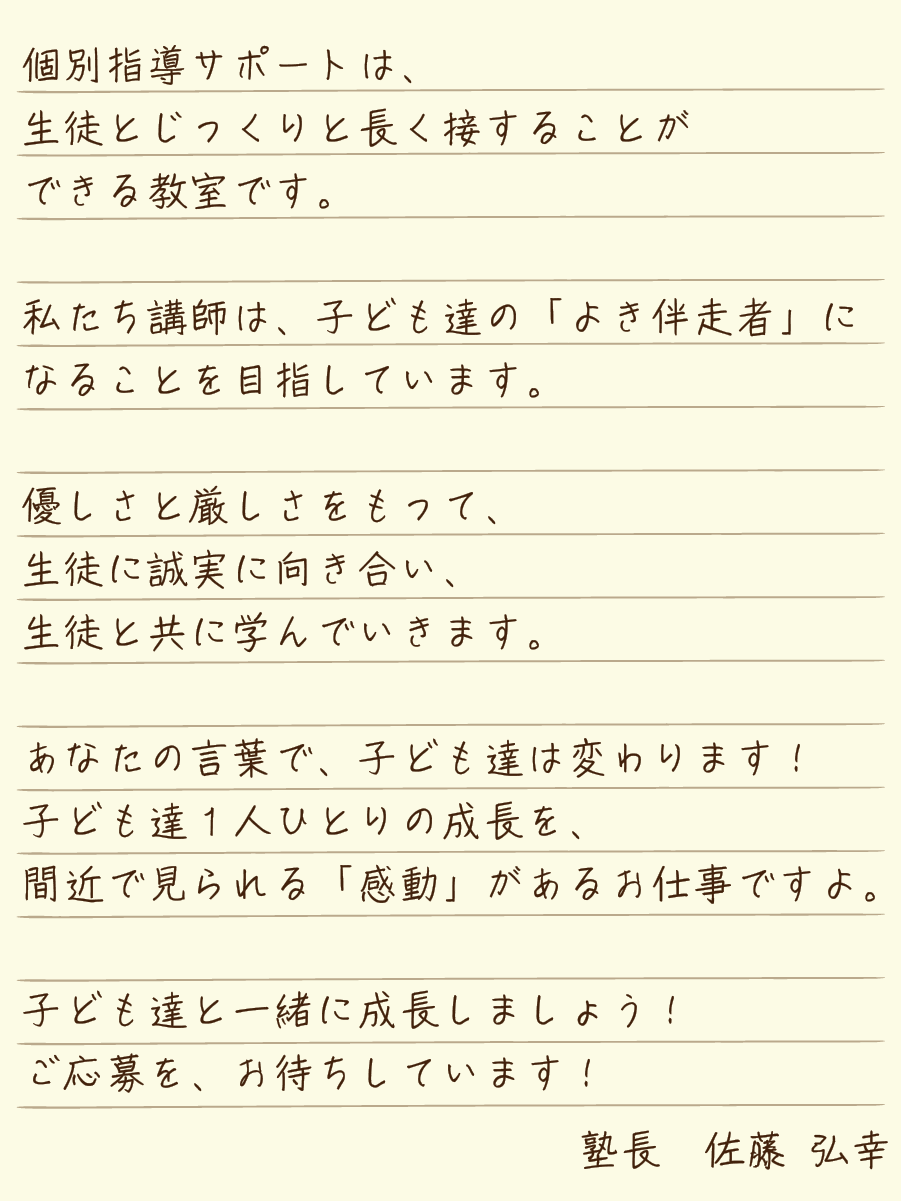 個別指導サポートは、
生徒とじっくりと長く接することが
できる教室です。
私たち講師は、子ども達の「よき伴走者」に
なることを目指しています。
優しさと厳しさをもって、
生徒に誠実に向き合い、
生徒と共に学んでいきます。
あなたの言葉で、子ども達は変わります！
子ども達１人ひとりの成長を、
間近で見られる「感動」があるお仕事ですよ。
子ども達と一緒に成長しましょう！
ご応募を、お待ちしています！
塾長　佐藤 弘幸